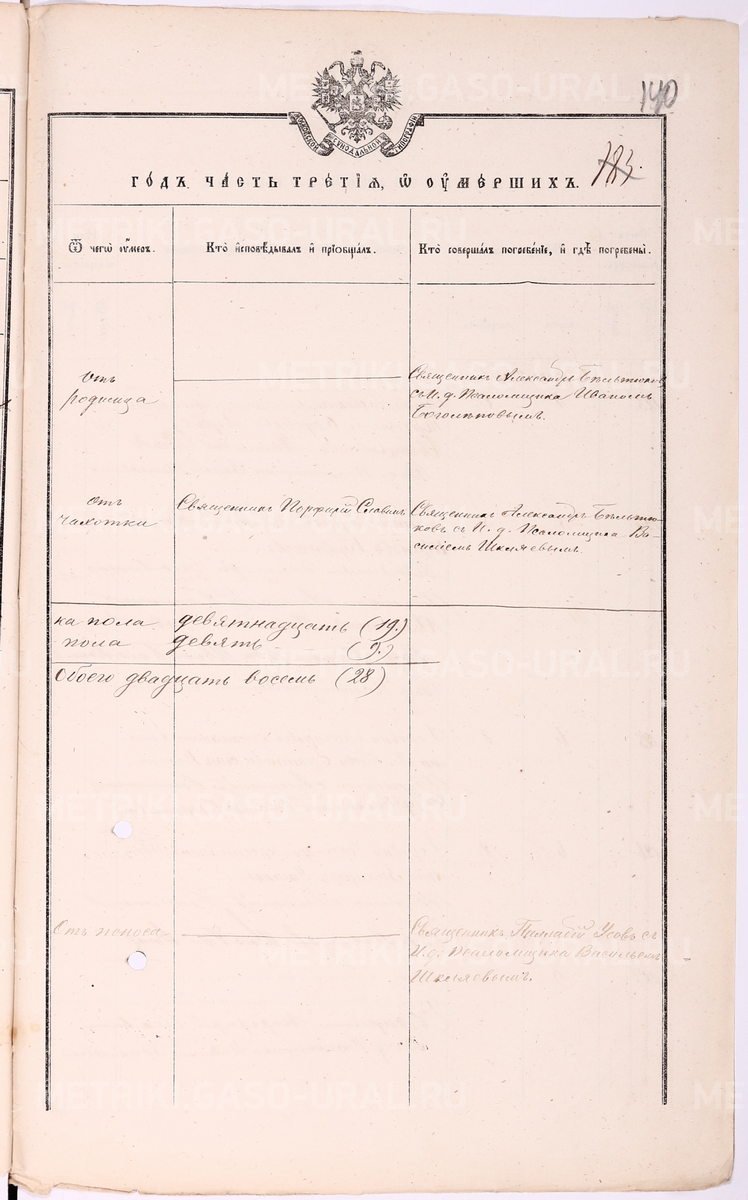 140
МОСКОВСКОЙ СУНОДАЛЬНОЙ ТИПОГРАФІИ
183.
ГО́ДЪ, ЧА́СТЬ ТРЕ́ТІЯ, Ѡ ОУМЕ́РШИХЪ.
Ѿ чегѡ̀ оу́меръ.
Кто̀ и҆сповѣ́дывалъ и҆ пріѻбща́лъ.
Кто̀ соверша́лъ погребе́ніе, и҆ гдѣ̀ погребены̀.
Отъ
родимца
Священникъ Александръ Бѣльтюковъ
съ И. д. Псаломщика Иваномъ
Боголѣповымъ.
отъ
чахотки
Священникъ Порфирій Славнинъ
Священникъ Александръ Бѣльтю-
ковъ съ И. д. Псаломщика Ва-
силіемъ Шкляевымъ
ка пола девятнадцать (19.)
пола девять (9.)
Обоего двадцать восемь (28)
Отъ поноса
Священникъ Усовъ съ
И. д. Псаломщика Васильемъ
Шкляевымъ.
METRIKI.GASO-URAL.RU